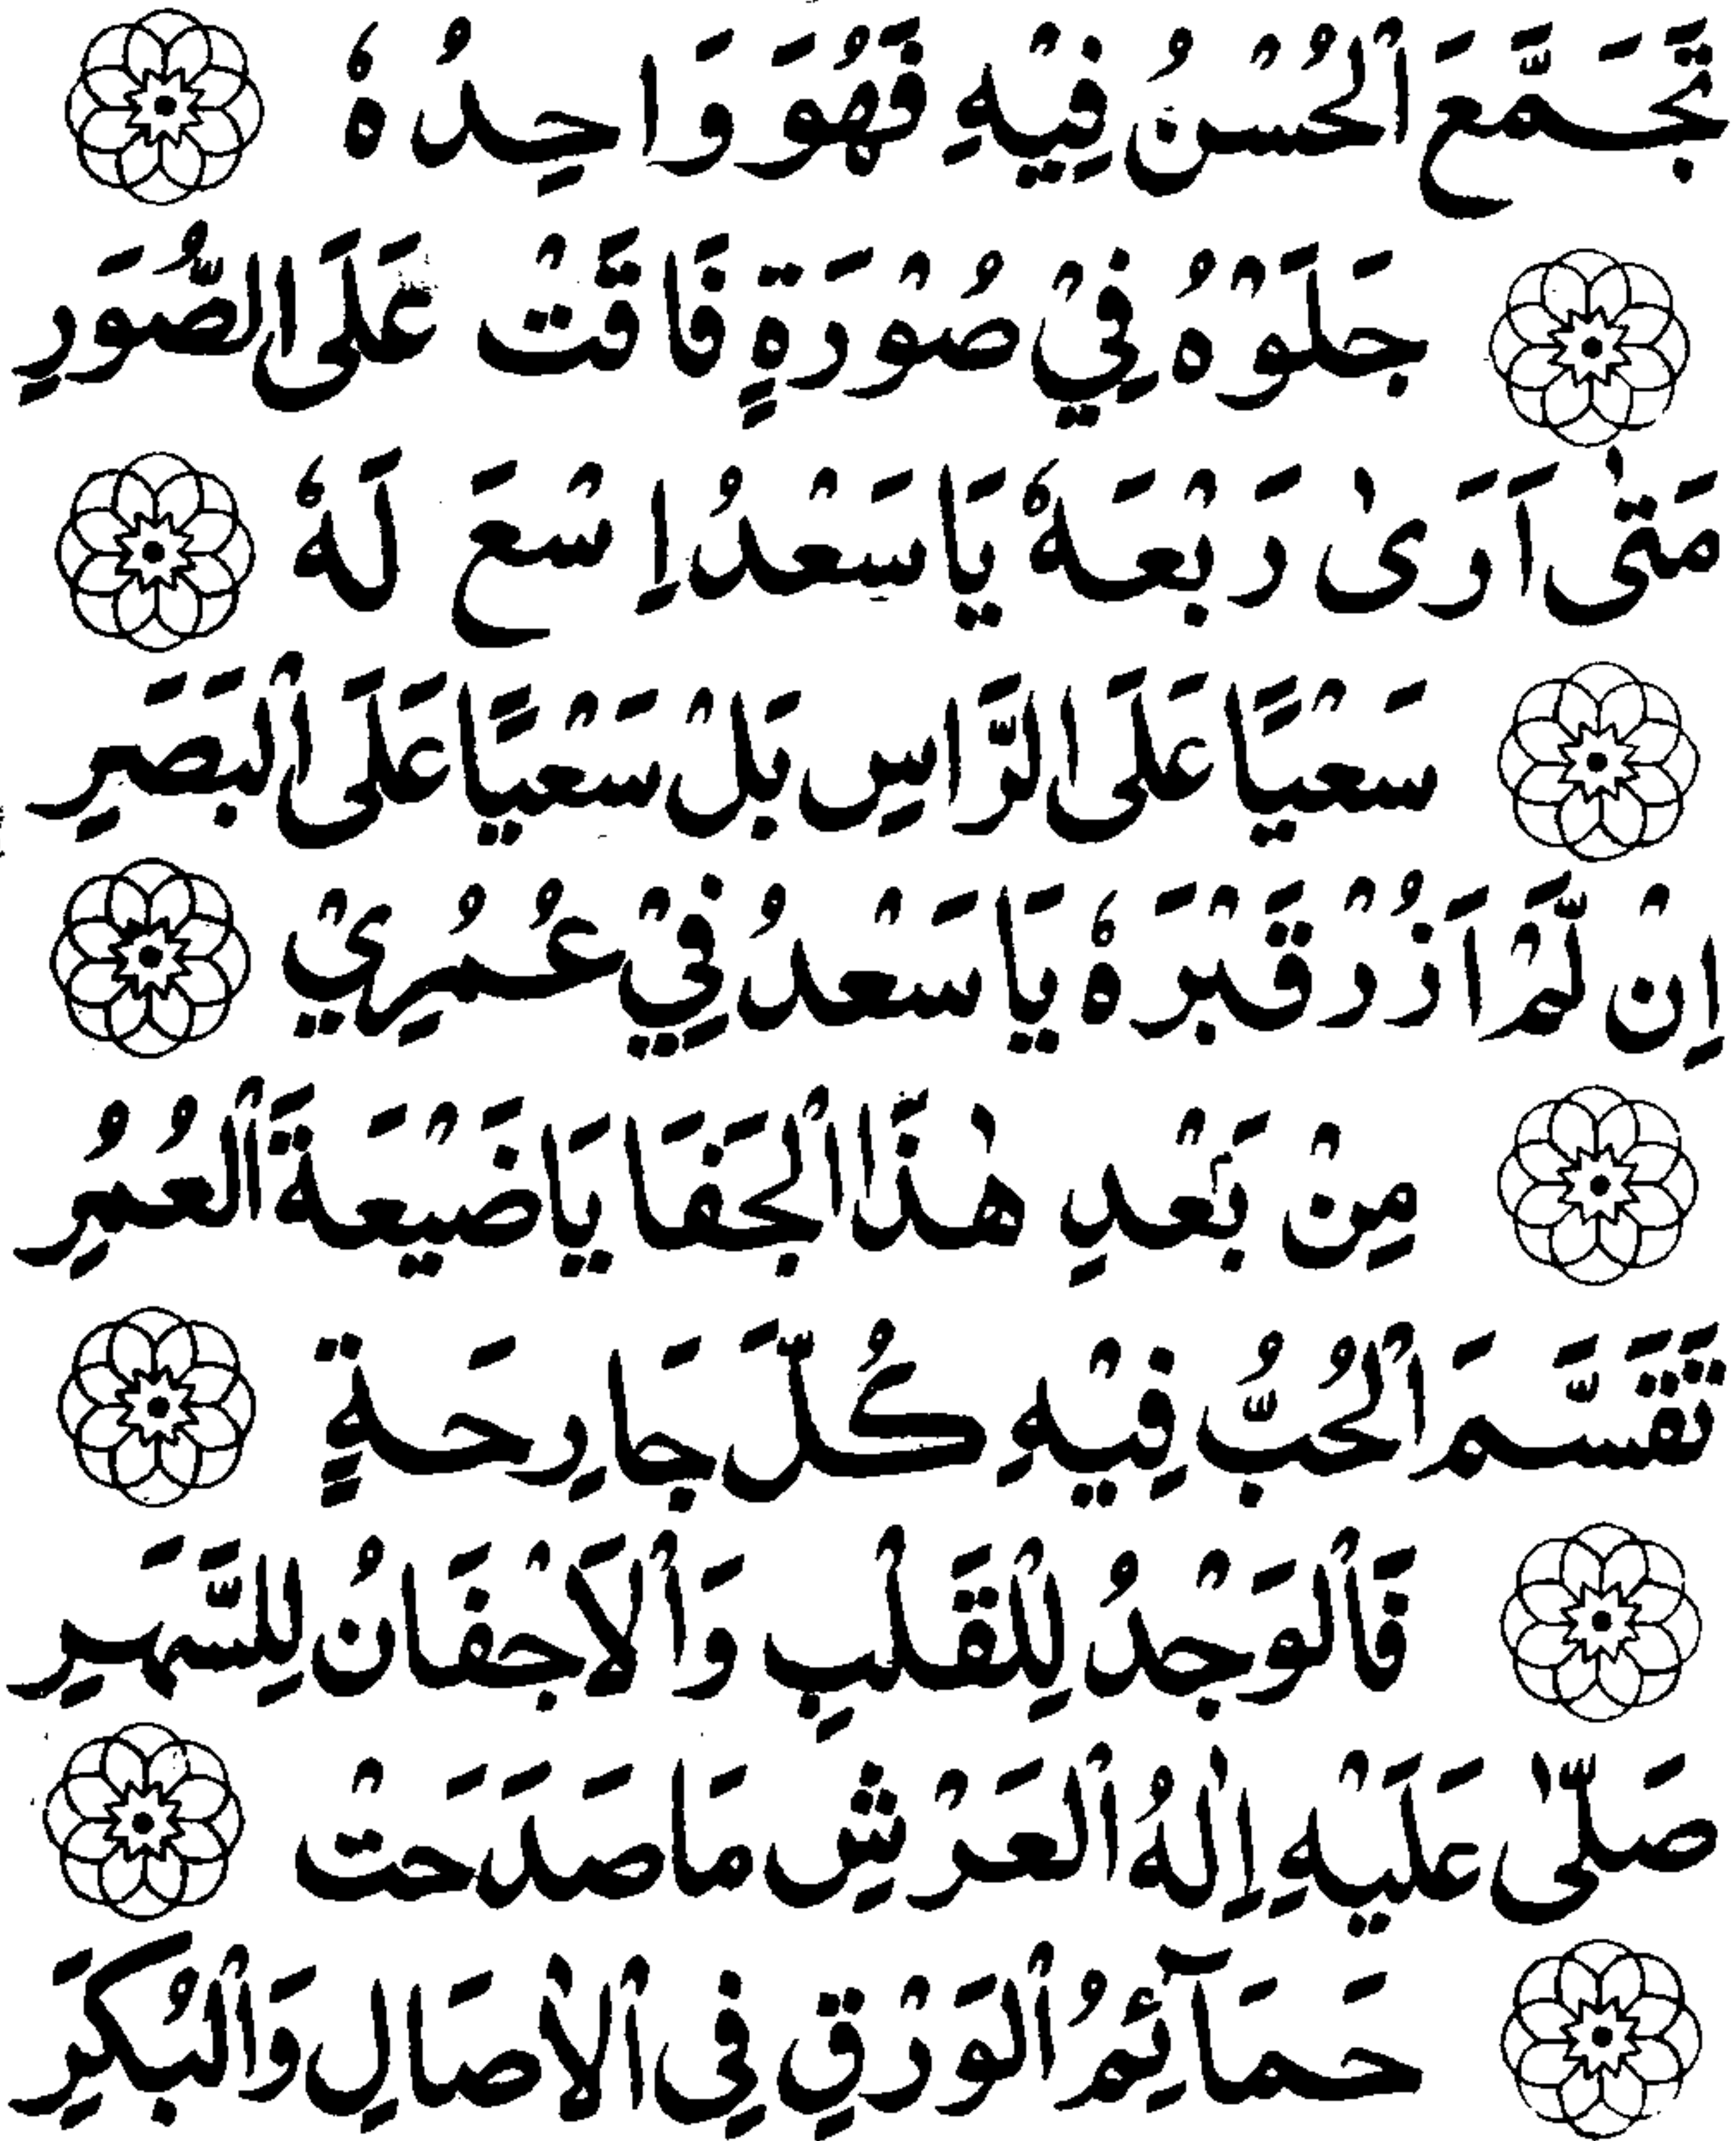 تَجَمَّعَ الْحُسْنُ فِيْهِ فَهُوَ وَاحِدُهٗ
جَلَوْهُ فِيْ صُوْرَةٍ فَاقَتْ عَلَى الصُّوَرِ
مَتٰى اَرَىٰ رَبْعَهٗ يَا سَعْدُ اِسْعَ لَهٗ
سَعْيًا عَلَى الرَّاسِ بَلْ سَعْيًا عَلَى الْبَصَرِ
اِنْ لَّمْ اَزُرْ قَبْرَهٗ يَا سَعْدُ فِيْ عُمُرِيْ
مِنْ بَعْدِ هٰذَا الْجَفَا يَا ضَيْعَةَ الْعُمُرِ
تَقَسَّمَ الْحُبُّ فِيْهِ كُلَّ جَارِحَةٍ
فَالْوَجْدُ لِلْقَلْبِ وَالْاَجْفَانُ لِلسَّهَرِ
صَلّٰى عَلَيْهِ اِلٰهُ الْعَرْشِ مَا صَدَحَتْ
حَمَآئِمُ الْوَرْقِ فِى الْاٰصَالِ وَالْبُكَرِ